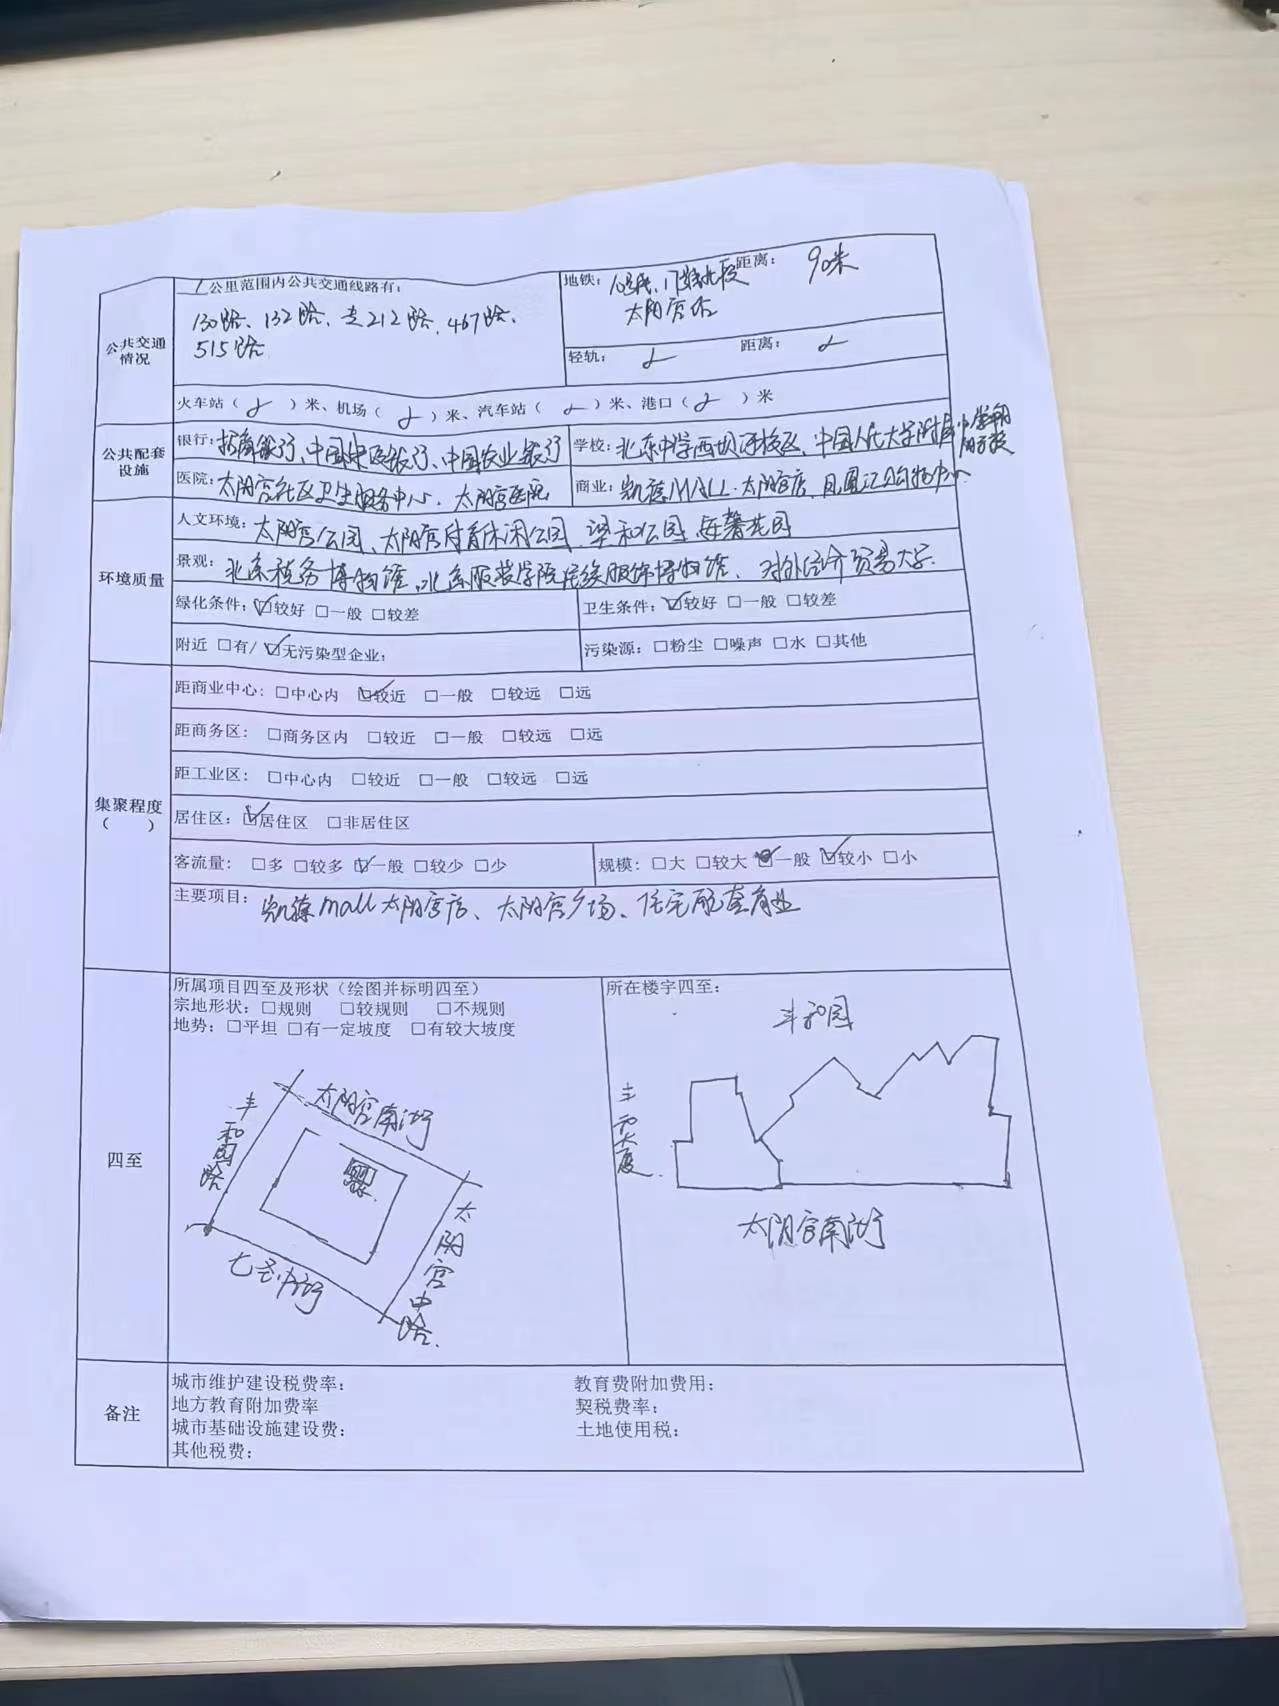 1公里范围内公共交通线路有:
130路、132路、专212路、467路、
515路
地铁: 10号线、17号线北段 距离: 90米
太阳宫站
公共交通
情况
轻轨: 距离:
火车站( )米、机场( )米、汽车站( )米、港口( )米
公共配套
设施
银行: 招商银行、中国农业银行
学校: 北京中学西坝河校区、中国人民大学附属中学朝
阳分校
医院: 太阳宫社区卫生服务中心、太阳宫医院
商业: 凯德MALL·太阳宫店、凤凰汇购物中心
环境质量
人文环境: 太阳宫公园、太阳宫体育休闲公园、公园、花园
景观: 北京税务博物馆、北京服装学院民族服饰博物馆、对外经济贸易大学
绿化条件: ☑较好 □一般 □较差
卫生条件: ☑较好 □一般 □较差
附近 □有/☑无污染型企业;
污染源: □粉尘 □噪声 □水 □其他
集聚程度
( )
距商业中心: □中心内 ☑较近 □一般 □较远 □远
距商务区: □商务区内 □较近 □一般 □较远 □远
距工业区: □中心内 □较近 □一般 □较远 □远
居住区: ☑居住区 □非居住区
客流量: □多 □较多 ☑一般 □较少 □少
规模: □大 □较大 一般 ☑较小 □小
主要项目: 凯德mall太阳宫店、太阳宫广场、住宅配套商业
四至
所属项目四至及形状(绘图并标明四至)
宗地形状: □规则 □较规则 □不规则
地势: □平坦 □有一定坡度 □有较大坡度
太阳宫南街
丰和园路
太阳宫中路
七圣中街
所在楼宇四至:
丰和园
丰和大厦
太阳宫南街
备注
城市维护建设税费率:
教育费附加费用:
地方教育附加费率
契税费率:
城市基础设施建设费:
土地使用税:
其他税费: